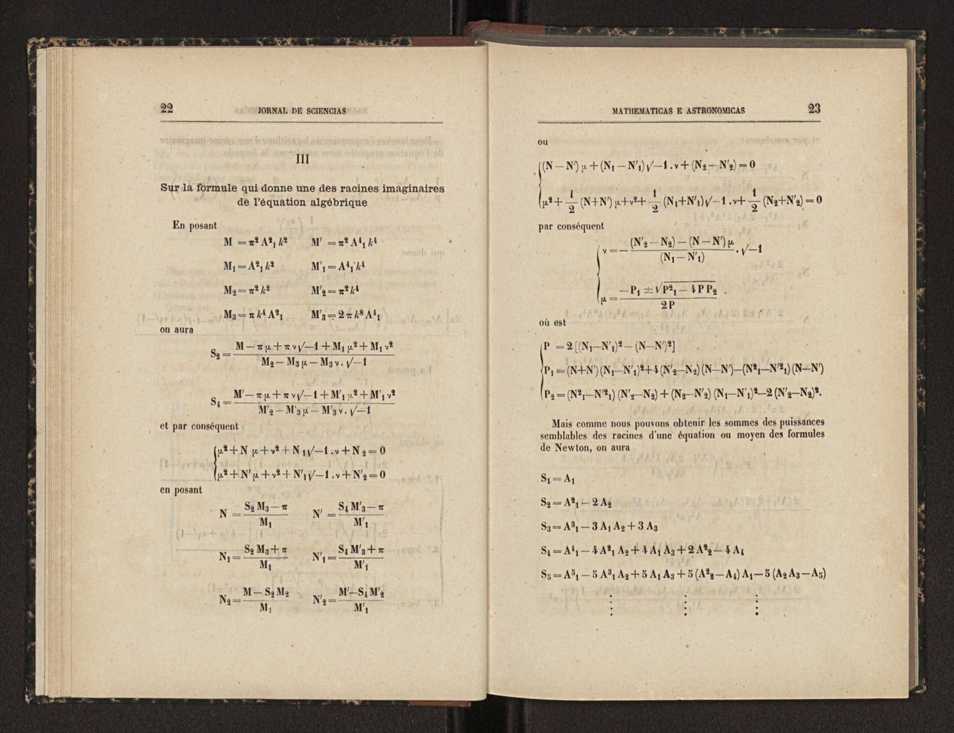 22 JORNAL DE SCIENCIAS
III
Sur la formule qui donne une des racines imaginaires
de l'équation algébrique
En posant
M = π² A²₁ k² M′ = π² A⁴₁ k⁴
M₁ = A²₁ k² M′₁ = A⁴₁ k⁴
M₂ = π² k² M′₂ = π² k⁴
M₃ = π k⁴ A²₁ M′₃ = 2 π k⁸ A⁴₁
on aura
S₂ = (M − π μ + π ν √−1 + M₁ μ² + M₁ ν²) / (M₂ − M₃ μ − M₃ ν . √−1)
S₄ = (M′ − π μ + π ν √−1 + M′₁ μ² + M′₁ ν²) / (M′₂ − M′₃ μ − M′₃ ν . √−1)
et par conséquent
μ² + N μ + ν² + N₁ √−1 . ν + N₂ = 0
μ² + N′ μ + ν² + N′₁ √−1 . ν + N′₂ = 0
en posant
N = (S₂ M₃ − π) / M₁ N′ = (S₄ M′₃ − π) / M′₁
N₁ = (S₂ M₃ + π) / M₁ N′₁ = (S₄ M′₃ + π) / M′₁
N₂ = (M − S₂ M₂) / M₁ N′₂ = (M′ − S₄ M′₂) / M′₁
MATHEMATICAS E ASTRONOMICAS 23
ou
(N − N′) μ + (N₁ − N′₁) √−1 . ν + (N₂ − N′₂) = 0
μ² + 1/2 (N + N′) μ + ν² + 1/2 (N₁ + N′₁) √−1 . ν + 1/2 (N₂ + N′₂) = 0
par conséquent
ν = − ((N′₂ − N₂) − (N − N′) μ) / (N₁ − N′₁) . √−1
μ = (−P₁ ± √P²₁ − 4 P P₂) / 2P
où est
P = 2 [(N₁ − N′₁)² − (N − N′)²]
P₁ = (N + N′) (N₁ − N′₁)² + 4 (N′₂ − N₂) (N − N′) − (N²₁ − N′²₁) (N − N′)
P₂ = (N²₁ − N′²₁) (N′₂ − N₂) + (N₂ − N′₂) (N₁ − N′₁)² − 2 (N′₂ − N₂)².
Mais comme nous pouvons obtenir les sommes des puissances
semblables des racines d'une équation ou moyen des formules
de Newton, on aura
S₁ = A₁
S₂ = A²₁ − 2 A₂
S₃ = A³₁ − 3 A₁ A₂ + 3 A₃
S₄ = A⁴₁ − 4 A²₁ A₂ + 4 A₁ A₃ + 2 A²₂ − 4 A₄
S₅ = A⁵₁ − 5 A³₁ A₂ + 5 A₁ A₃ + 5 (A²₂ − A₄) A₁ − 5 (A₂ A₃ − A₅)
⋮ ⋮ ⋮